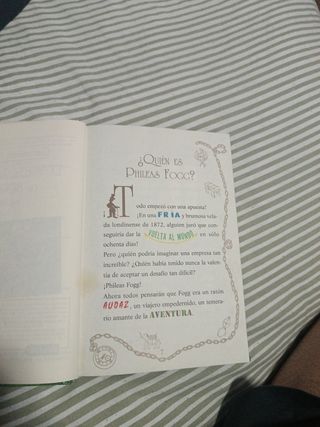 ¿QUIÉN ES
PHILEAS FOGG?
¡Todo empezó con una apuesta!
¡En una FRÍA y brumosa vela-
da londinense de 1872, alguien juró que con-
seguiría dar la VUELTA AL MUNDO en sólo
ochenta días!
Pero ¿quién podría imaginar una empresa tan
increíble? ¿Quién había tenido nunca la valen-
tía de aceptar un desafío tan difícil?
¡Phileas Fogg!
Ahora todos pensarán que Fogg era un ratón
AUDAZ, un viajero empedernido, un temera-
rio amante de la AVENTURA.